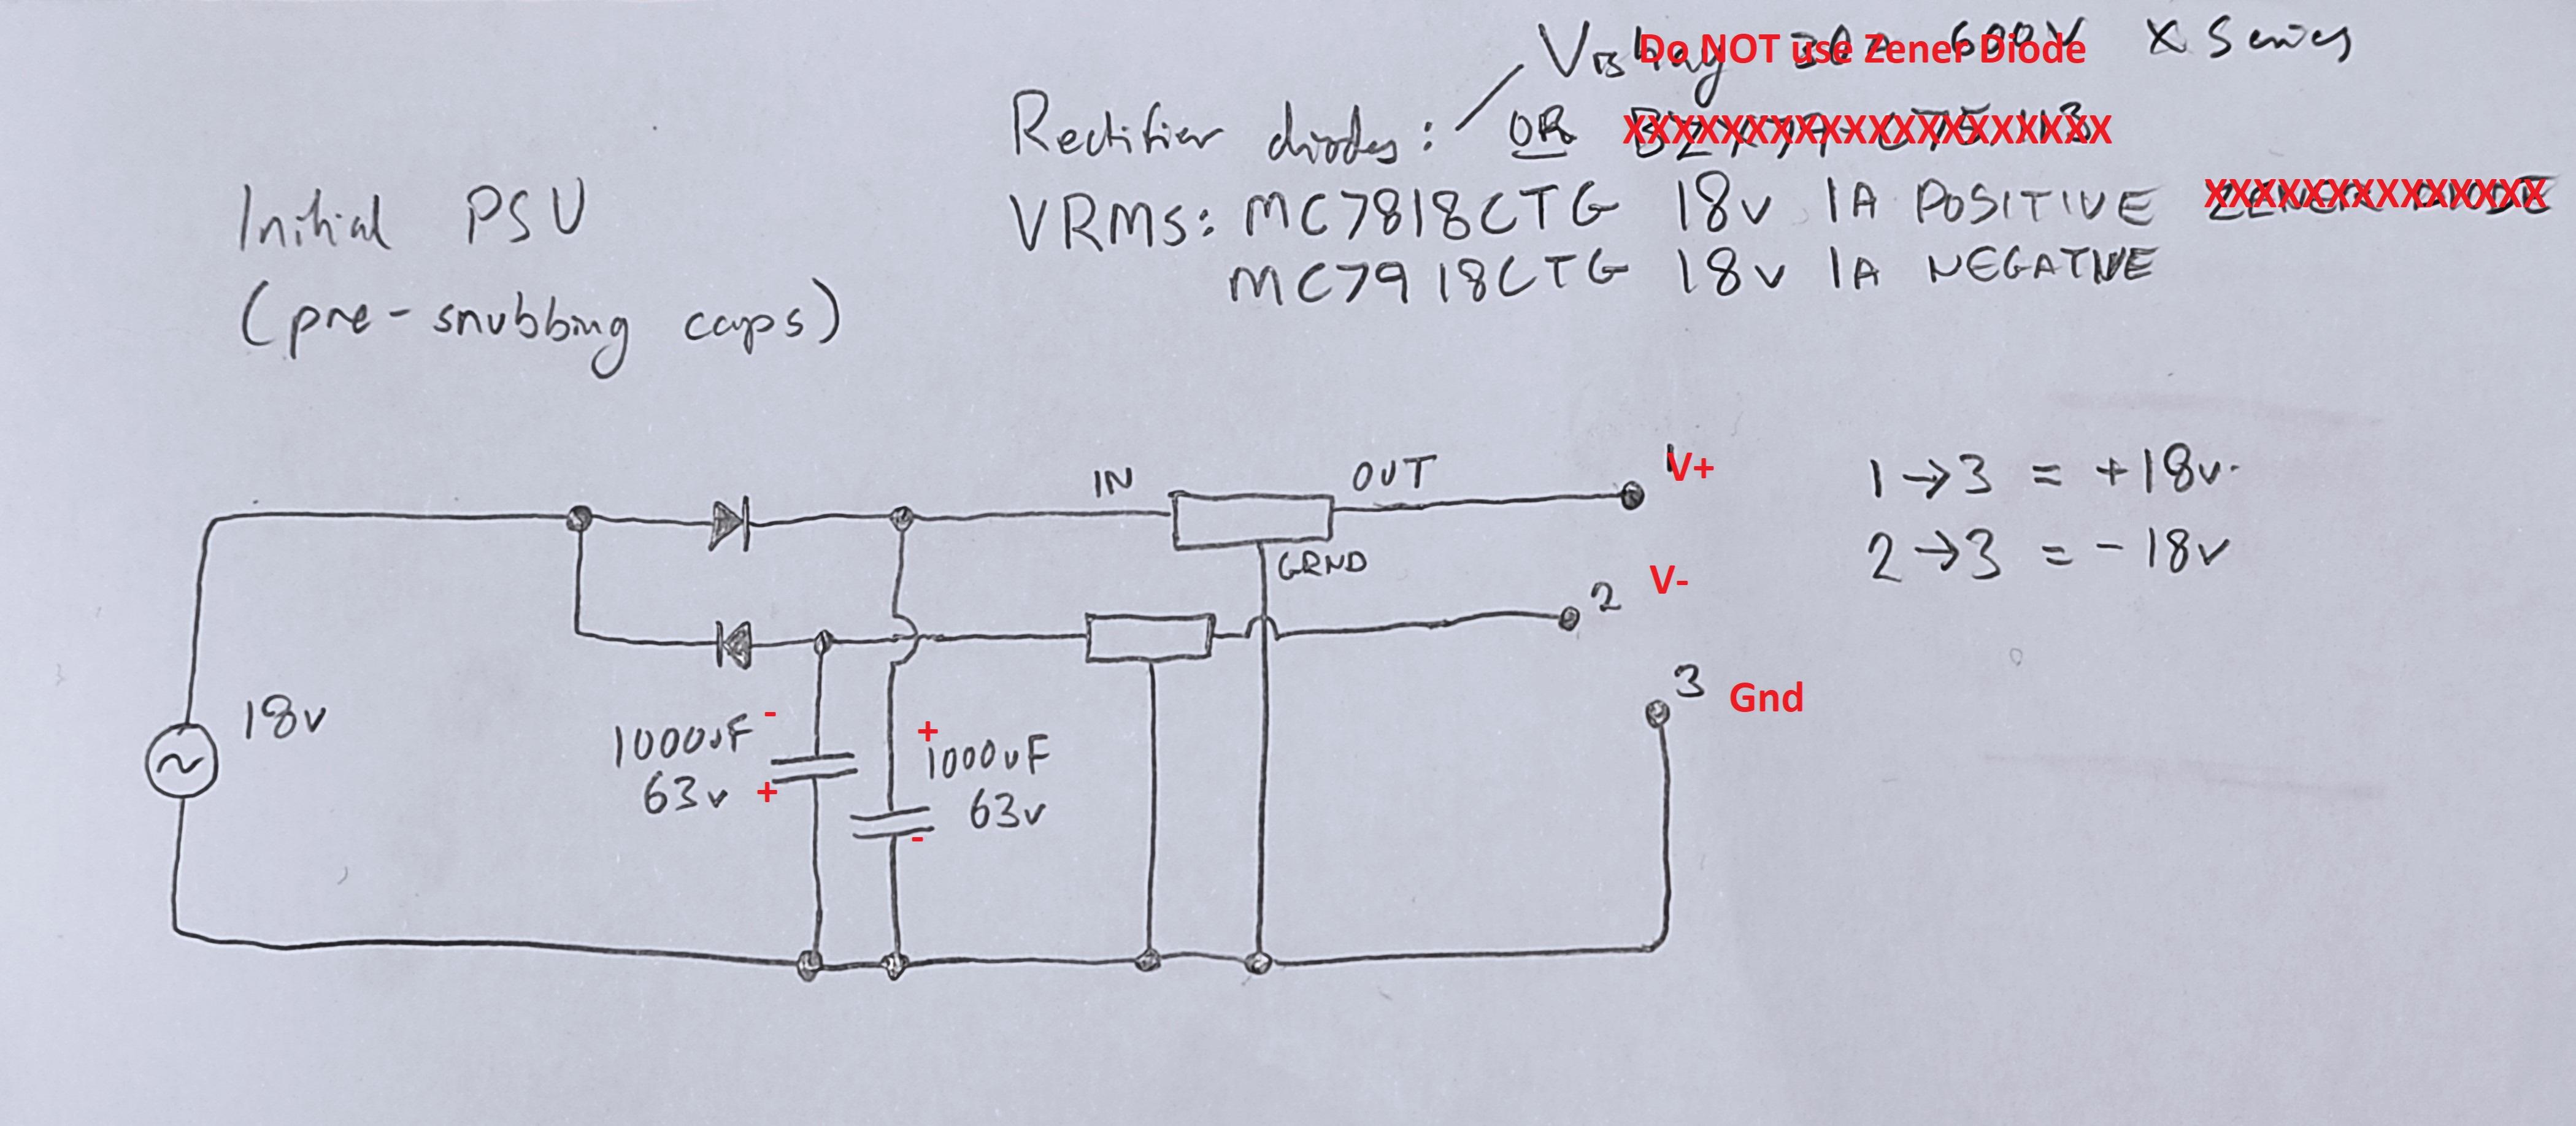 Vishay 30A 600V X Series
Do NOT use Zener Diode
Rectifier diodes: OR
XXXXXXXXXXXXXXXXXXXX
Initial PSU
(pre-snubbing caps)
VRMS: MC7818CTG 18v 1A POSITIVE ZENER DIODE
XXXXXXXXXXXXXX
MC7918CTG 18v 1A NEGATIVE
IN
OUT
1
V+
1→3 = +18v.
GRND
2
V-
2→3 = -18v
18v
1000uF
63v
-
+
+
1000uF
63v
-
3
Gnd